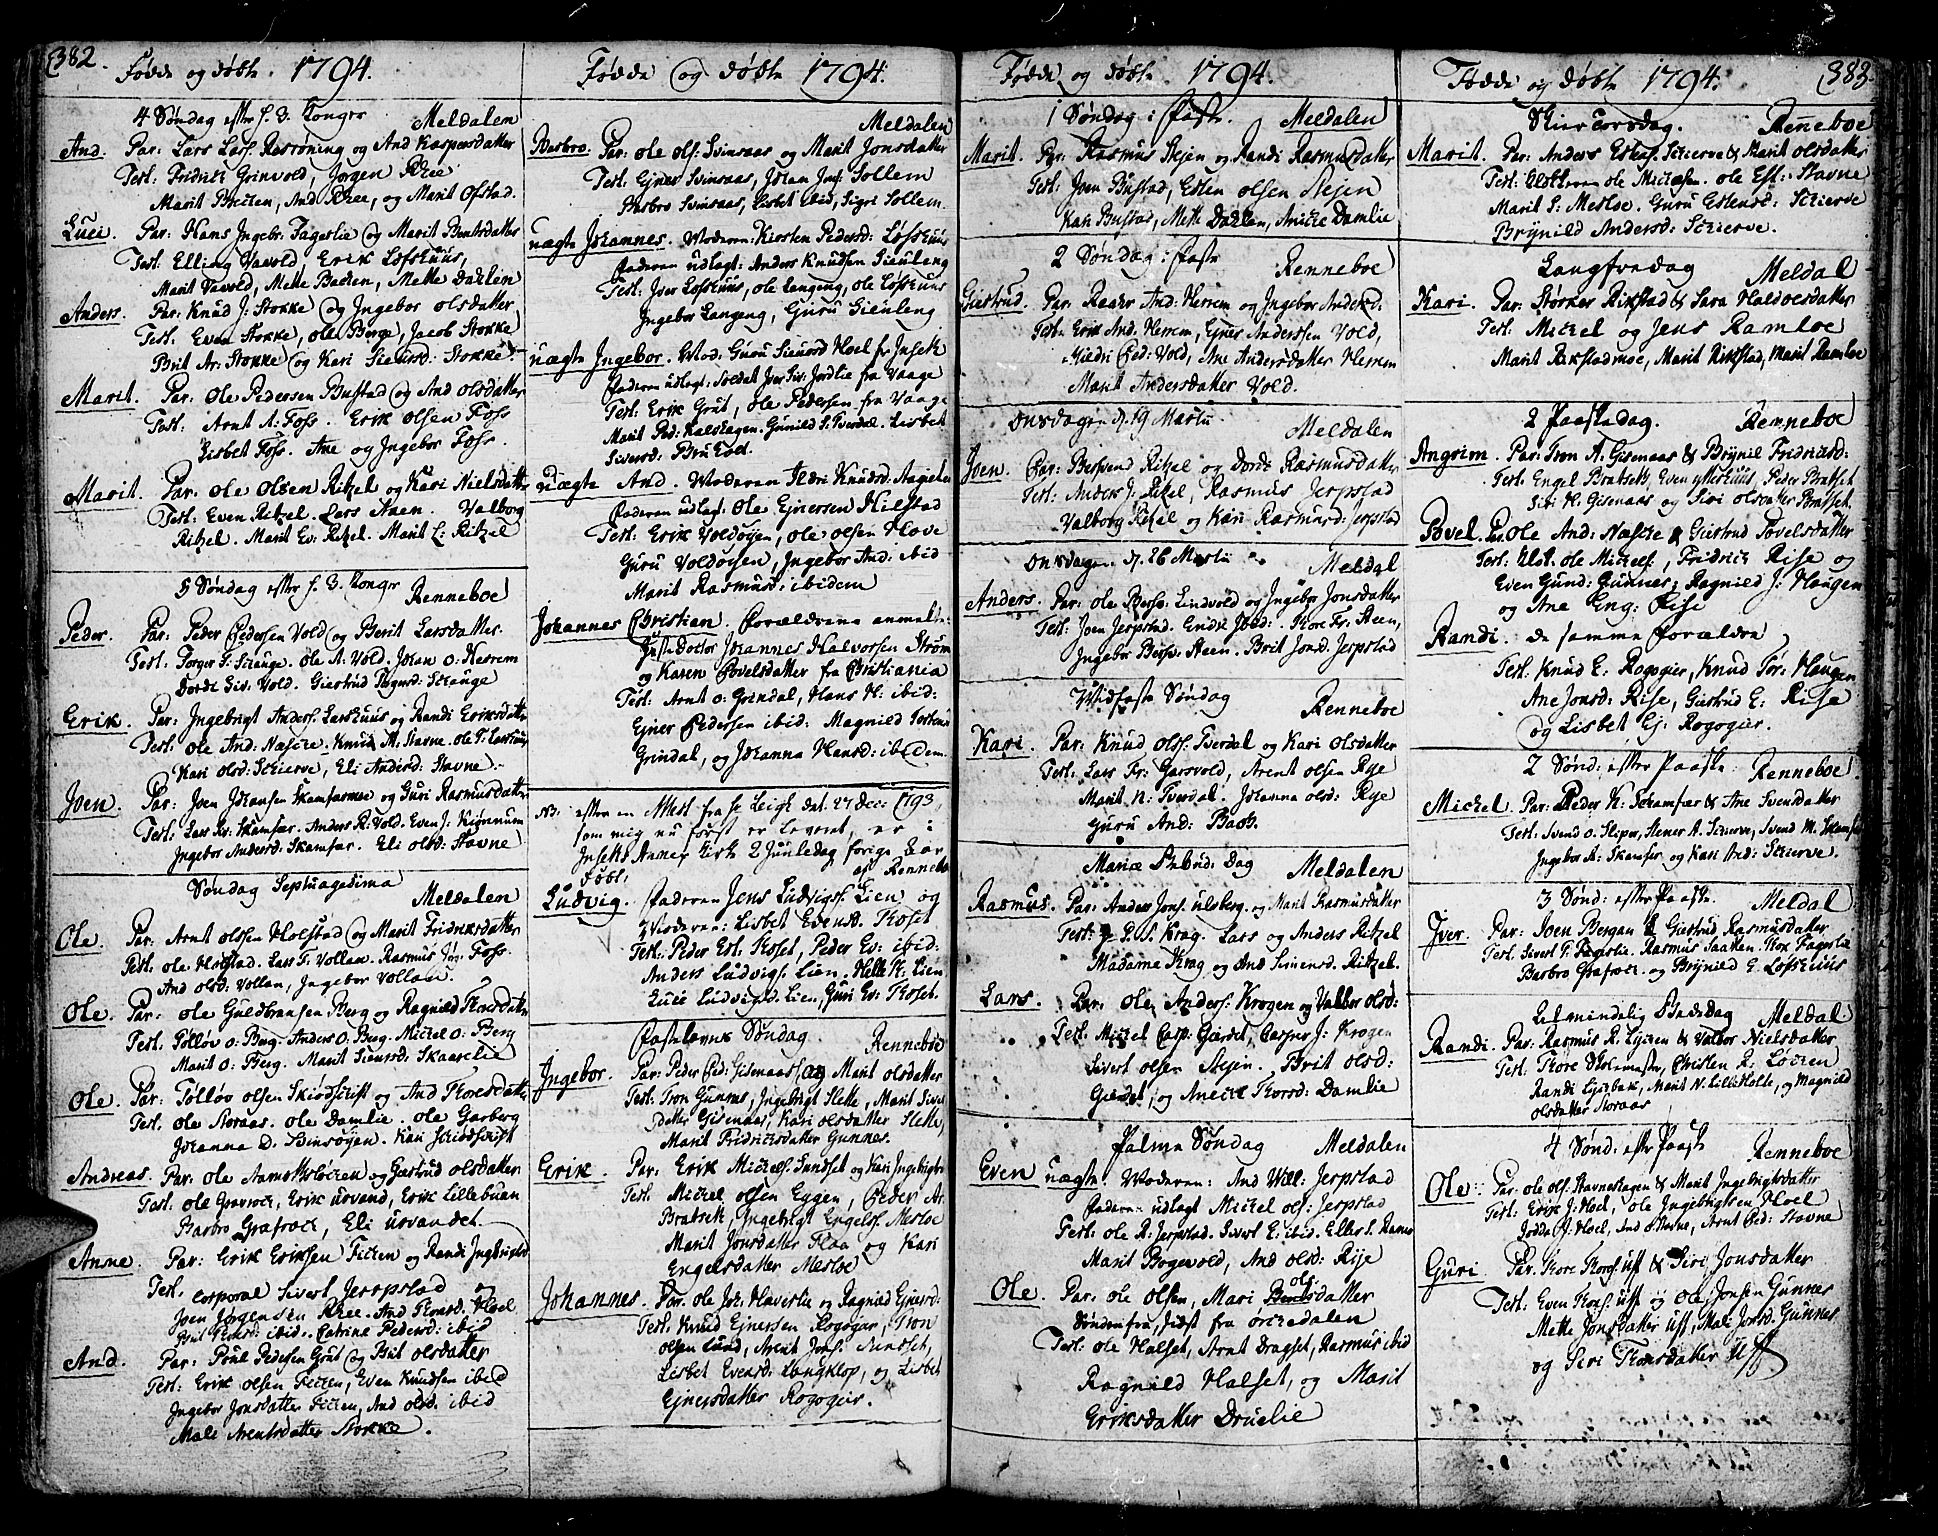 382.
Fødde og døbte 1794.
4 Søndag efter H. 3. Konger Meldalen
And. Par: Lars Lars. Resrøning og And Kaspersdatter
Test: Fridrich Grinvold, Jørgen Rhee
Marit And Rhee, og Marit Ofstad.
Luci. Par: Hans Ingebr: Fagerlie og Marit Bentsdatter
Test. Elling Vavold, Erik Løfshuus,
Marit Vavold, Mette Mette Dahlen
Anders. Par: Knud J: Stokke og Ingebor olsdatter
Test. Even Stokke, ole Berge, Jacob Stokke
Brit Ar: Stokke og Kari Siensrd: Stokke
Marit. Par. Ole Pedersen Bustad og And olsdatter
Test: Arnt A: Foss. Erik olsen Foss
Lisbet Foss. Ane og Ingebor Foss.
Marit. Par. Ole Olsen Ritzel og Kari Nielsdatter
Test: Even Ritzel. Lars Valborg
Ritzel. Marit Ev: Ritzel. Marit L: Ritzel
5 Søndag efter H. 3. Kongr Renneboe
Peder. Par: Peder Pedersen Vold og Berit Larsdatter.
Test: Torger S: Skauge. Ole A: Vold. Johan O: Herrem
Dordi Siv: Vold. Giertrud Skauge
Erik. Par: Ingebrigt Anders. Larshuus og Randi Eriksdatter
Test: Ole And: Næschre. Knud A. Stavne. Ole T. Larshuus
Kari olsd: Schierve, Eli Andersd: Stavne.
Joen. Par: Joen Johansen Skamfærmoe og Guri Rasmusdatter
Test: Lars Skamfær. Anders R: Vold. Even J:
Ingebor Andersd: Skamfær. Eli olsd: Stavne
Søndag Septuagesima Meldalen
Ole. Par: Arnt olsen Holstad og Marit Fridriksdatter
Test. Ole Lars T: Vollan. Rasmus Foss.
And olsd: Vollan, Ingebor Vollan.
Ole. Par: ole Guldbransen Berg og Ragnild
Test. Tølløv O: Berg. Anders O: Berg. Michel O: Berg
Marit O: Berg. Marit Siensrd: Skaarelie
Ole. Par: Tølløv olsen og And Thoresdatter
Test. ole Noraas. ole Damlie. ole Garberg
Johanna O. Kari
Andreas. Par: ole og Giertrud olsdatter
Test: ole Gravrock, Erik Usvand, Erik Lillebuan
Barbro Grafrock, Eli Usvandet.
Anne. Par: Erik Eriksen og Randi Ingebrigtsd:
Test. corporal Sivert Jerpstad og
Joen Jørgensen Rhee. And Thoresd: Hoel
Brit Thoresd: ibid. Catrine Pedersd: ibid
And. Par: Poul Pedersen Grut og Brit olsdatter
Test: Erik olsen Even Knudsen ibid
Ingebor Jonsdatter And olsd: ibid
Mali Arentsdatter Stokke.
Fødde og døbte 1794.
Meldalen
Barbro. Par: Ole Ols: Svinsaas og Marit Jonsdatter
Test: Ejner Svinsaas, Johan Sollem
Barbro Svinsaas, Lisbet ibid, Sigri Sollem.
uægte Johannes. Moderen: Kirsten Pedersd: Løfshuus
Faderen udlagt: Anders Knudsen Sienleng
Test: Iver Løfshuus, Ole Langeng, Ole Løfshuus
Ingebor Langeng, Guru Sienleng
uægte Ingebor. Mod: Guru Sienrsd Hoel fr Insett
Faderen udlagt: Soldat Iver Siv: Jordlie fra Vaage
Test: Erik Grut, Ole Pedersen fra Vaage
Marit Ped: Kalshagen. Gunild S. Tverdal. Lisbet
Siversd:
uægte And. Moderen Ildri Knudsd:
Faderen udlagt: Ole Ejnersen
Test: Erik Voldøyen, ole olsen
Guru Voldøien, Ingebor And: ibid
Marit Rasmusd: ibidem
Johannes Christian. Forældrene anmeldte
Doctor Johannes Halvorsen Strøm
og Karen Povelsdatter fra Christiania
Test: Arnt O: Grindal, Hans H. ibid:
Ejner Pedersen ibid. Magnild
Grindal, og Johanna Hansd: ibidem.
NB: efter en Attest fra Leigh dat. 27 Dec: 1793,
som mig nu først er leveret, er i
Insets Annex Kirke 2 Juuledag forige Aar
døbt, af Renneboe
Ludvig. Faderen Jens Ludvigs: Lien og
Moderen: Lisbet Evensd: Koset
Test: Peder Est: Koset, Peder Ev: ibid:
Anders Ludvigs: Lien. Helle K. Lien
Lucie Ludvigsd: Lien, Guri Ev: Koset.
Fastelavns Søndag Renneboe
Ingebor. Par: Peder Ped: Gisenaas og Marit olsdatter
Test: Tron Gunnes, Ingebrigt Hette, Marit Siver
datter Gisenaas, Kari olsdatter Hette,
Marit Fridrichsdatter Gunnes.
Erik. Par: Erik Michels: Sundset og Kari Ingebrigtsd
Test: Michel olsen Eggen, Peder Ar.
Bratset, Ingebrigt Engels. Mesloe
Marit Jonsdatter Flaa og Kari
Engelsdatter Mesloe
Johannes. Par. ole Joh: Haverlie og Ragnild Ejnersd:
Test: Knud Ejnersen Rogogier, Tron
olsen Lund, Arent Jons. Sundset,
Lisbet Evensd: Langklop, og Lisbet
Ejnersdatter Rogogier.
Fødde og døbte 1794.
1 Søndag i Faste. Meldalen
Marit. Par: Rasmus Stejen og Randi Rasmusdatter
Test: Joen Bustad, Esten olsen Stejen
Kari Bustad, Mette Dahlen, Anicke Damlie
2 Søndag i Faste Renneboe
Giertrud. Par: Roaer And: Herrem og Ingebor Andersd:
Test: Erik And. Herrem, Ejner Anderssen Vold,
Giedri Ped: Vold, Ane Andersdatter Herrem
Marit Andersdatter Vold.
Onsdagen d. 19 Martii Meldalen
Joen. Par: Bersvend Ritzel og Dordi Rasmusdatter
Test: Anders J. Ritzel, Rasmus Jerpstad
Valborg Ritzel og Kari Rasmusd: Jerpstad
Onsdagen d. 26 Martii Meldal
Anders. Par: ole Bersv: Lindvold og Ingebor Jonsdatter
Test. Joen Jerpstad. Endr. ibid: Thore Fr. Steen,
Ingebor Bersv: Steen. Brit Jonsd. Jerpstad
Midfaste Søndag Renneboe
Kari. Par: Knud ols: Tverdal og Kari olsdatter
Test: Lars Fr: Gæsvold, Arent olsen Rye
Marit N: Tverdal. Johanna olsd: Rye
Guru And: Bach.
Mariæ Bebud: Dag Meldalen
Rasmus. Par: Anders Jons. Ulsberg. og Marit Rasmusdatter
Test: P. S. Krag. Lars og Anders Ritzel
Madame Krag og And Simensd: Ritzel.
Lars. Par: Ole Anders: Krogen og Valbor olsd:
Test: Michel Casp: Giærdet, Casper J: Krogen
Sivert olsen Stejen. Brit olsd:
Giærdet, og Anicke Thorsd: Damlie
Palme Søndag Meldalen
Even uægte. Moderen: And Will: Jerpstad
Faderen udlagt Michel ols: Jerpstad
Test: ole R. Jerpstad. Sivert E: ibid. Ellef S. Ramo
Marit Bogevold, And olsd: Rye
Ole. Par: ole olsen, Mari ols: datter
Søndenfra, sidst fra Orckedalen
Test: ole Halset, Arnt Dragset, Rasmus ibid
Ragnild Halset, og Marit
Eriksdatter Druelie
Fødde og døbte 1794. 383
Skiær Torsdag. Renneboe
Marit. Par: Anders Estens: Schierve & Marit olsdatter
Test: ole Mickelsen. ole Est: Stavne
Marit S: Mesloe. Guru Estensd: Schierve
Brynild Andersd: Schierve.
Langfredag Meldal
Kari. Par: Størker Rikstad & Sara Haldoesdatter
Test: Michel og Jens Ramloe
Marit Rikstadmoe, Marit Rikstad, Marit Ramloe
2 Paaskedag. Renneboe
Angrim. Par: Tron A. Gisenaas & Brynil Fridricsd:
Test: Engel Bratset, Even Peder Bratset
Siri H. Gisenaas og Siri olsdatter Bratset.
Povel. Par. Ole And: Næschre & Giertrud Povelsdatter
Test: ole Mickels:, Fridrich Rise og
Even Gund: Gunnes, Ragnild J: Haugen
og Ane Eng: Rise
Randi. de samme Forældre
Test: Knud E: Rogogier, Knud Tor: Haugen
Ane Jonsd: Rise, Giertrud E: Rise
og Lisbet Ej: Rogogier.
2 Sønd: efter Paaske Renneboe
Michel. Par: Peder K: Schamfær & Ane Svensdatter
Test: Svend O: Sliper, Stener A. Schierve, Svend M. Skamfær
Ingebor A: Skamfer og Kari And: Schierve.
3 Sønd: efter Paaske. Meldal
Iver. Par: Joen Bergan & Giertrud Rasmusdatter
Test. Sivert T. Fagerlie. Rasmus Saatten. Thore Fagerlie
Barbro Grafrock. og Brynild E. Løfshuus
Almindelig Bededag Meldal
Randi. Par: Rasmus R. Løcken & Valbor Nielsdatter
Test: Thore Christen R. Løcken
Randi Marit N. Lilleholte, og Magnild
olsdatter Noraas
4 Sønd: efter Paaske Renneboe
Ole. Par: ole ols: Stavneshagen & Marit Ingebrigtsdatter
Test: Erik J: Hoel, ole Ingebrigtsen Hoel
J: Hoel, And Stavne, Arnt Ped: Stavne
Guri. Par. Thore Thores: Uff & Siri Jonsdatter
Test: Even Thors: Uff og Ole Jonsen Gunnes
Mette Jonsdatter Uff, Mali Jonsd: Gunnes
og Siri Thorsdatter Uff